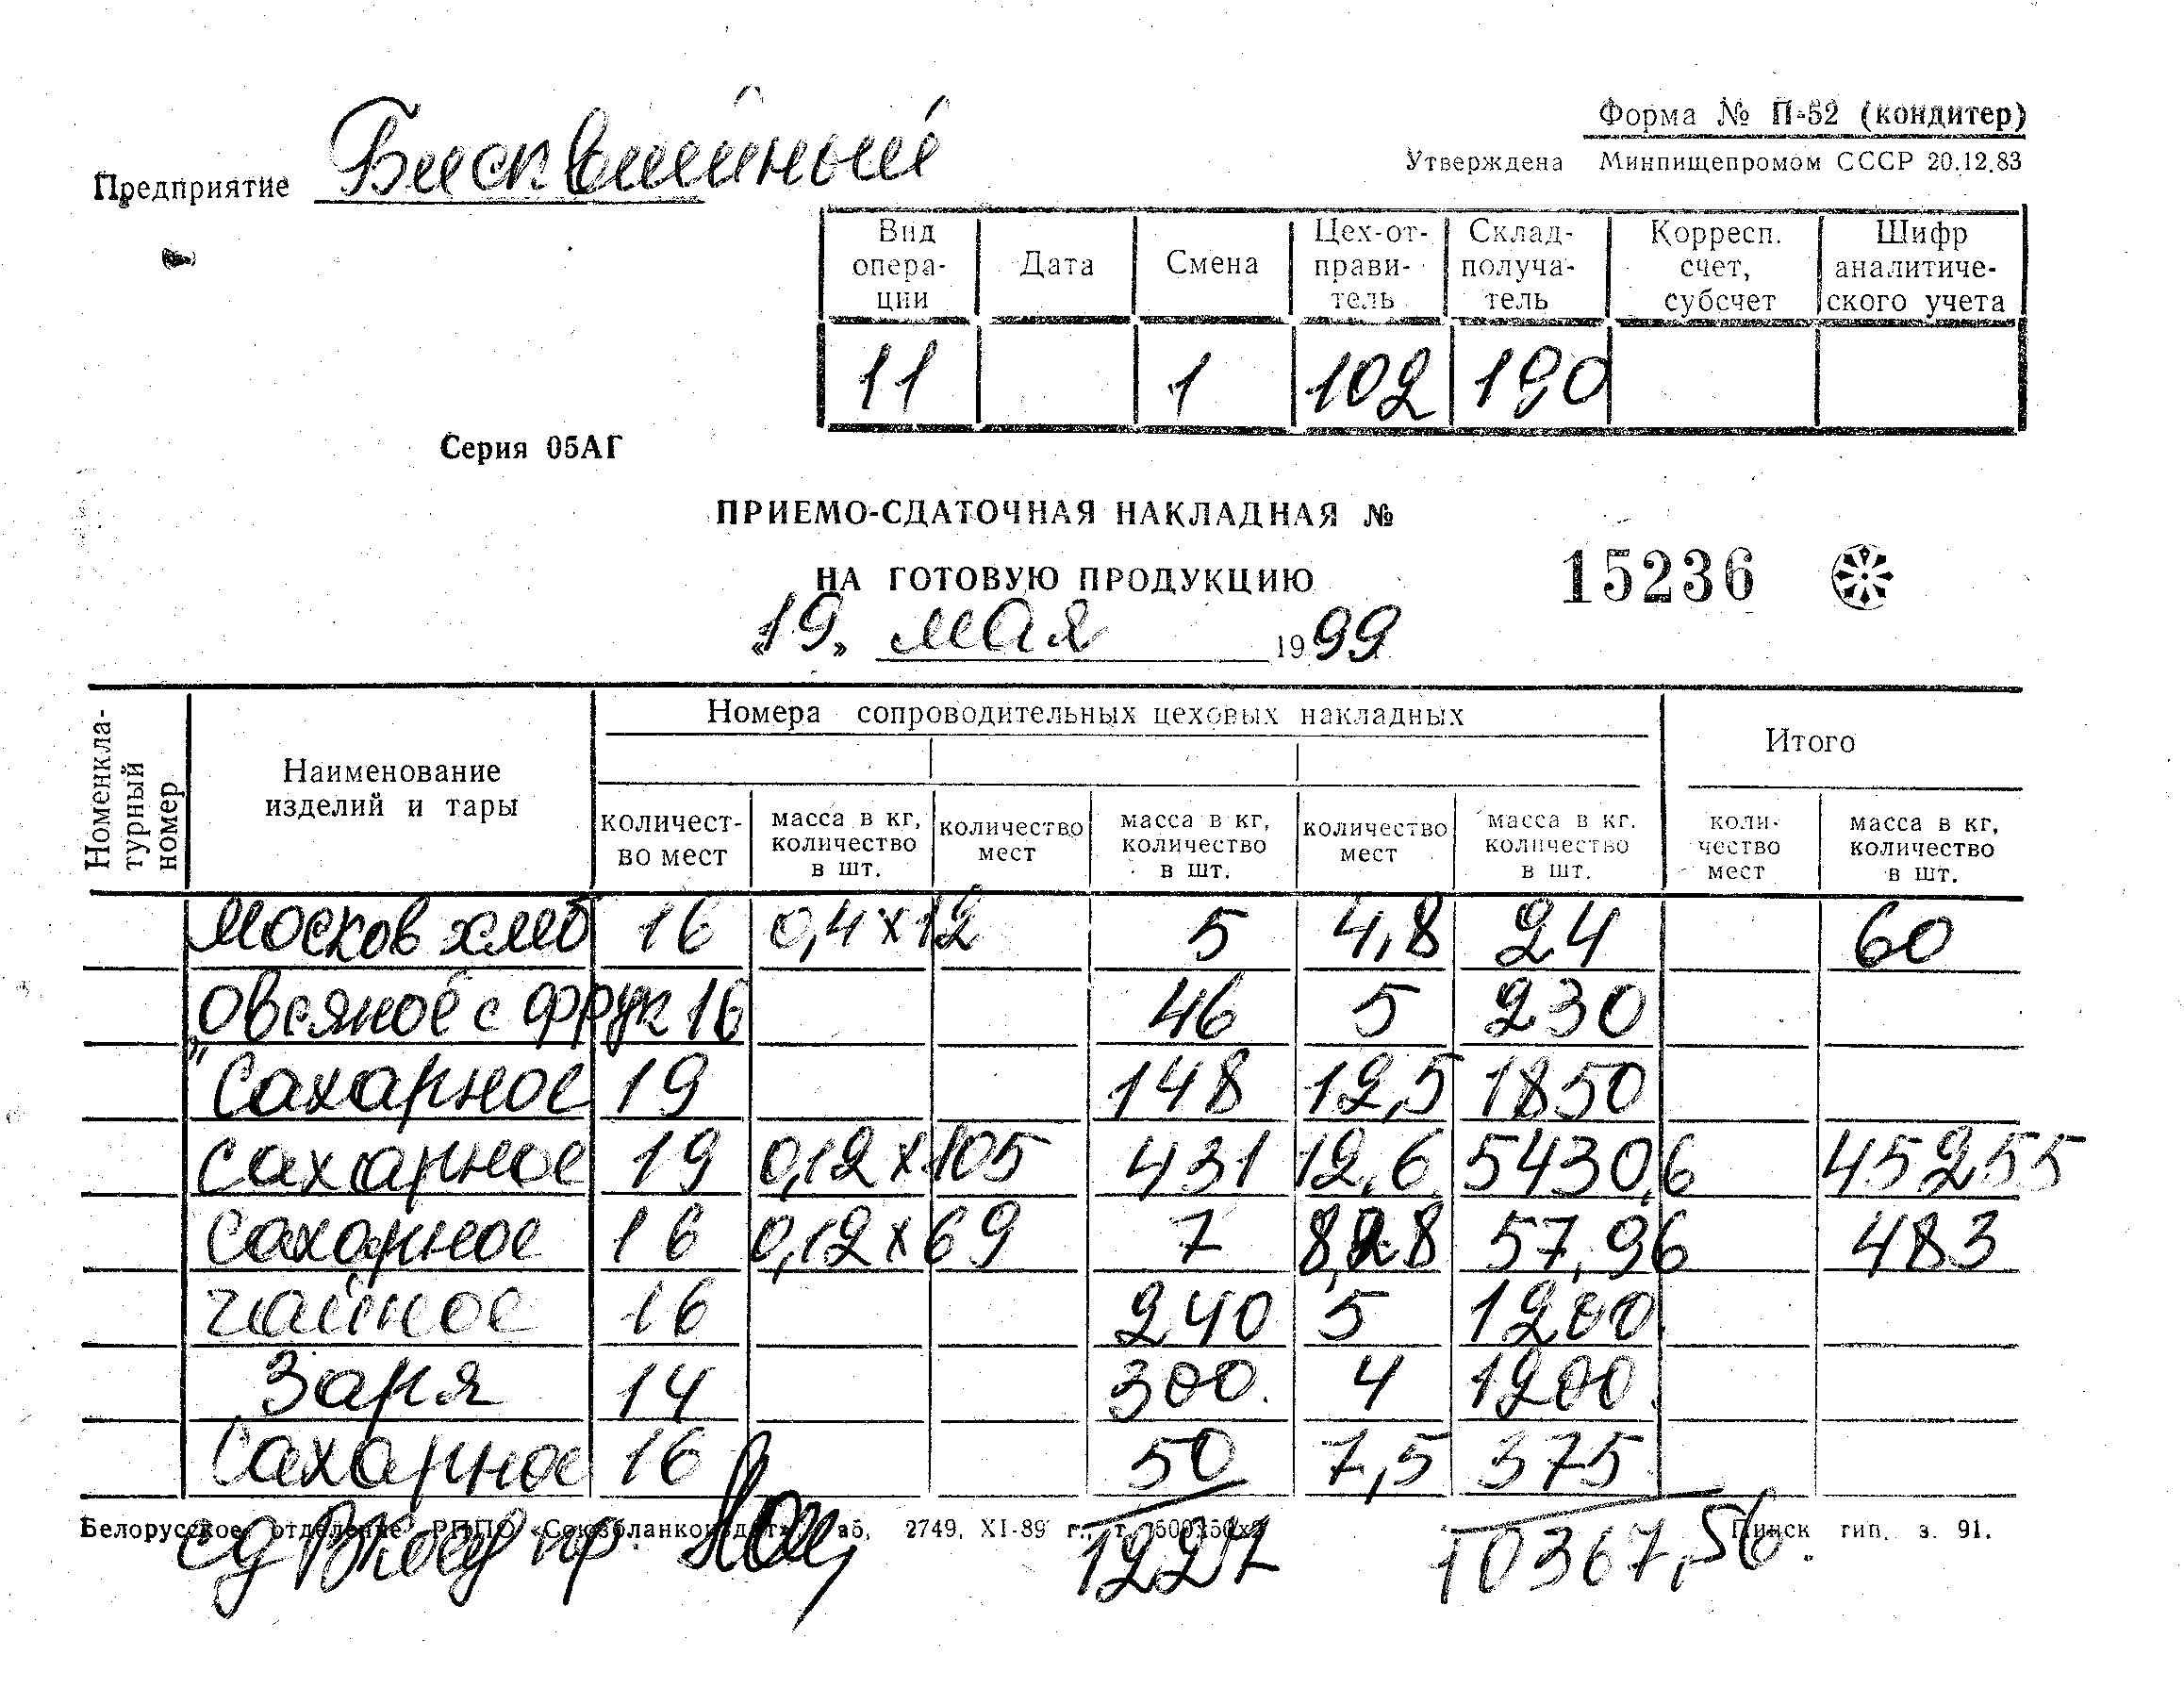 Форма № П-52 (кондитер)
Предприятие Бисквитный
Утверждена Минпищепромом СССР 20.12.83
Вид операции Дата Смена Цех-отправитель Склад-получатель Корресп. счет, субсчет Шифр аналитического учета
11 1 102 190
Серия 05АГ
ПРИЕМО-СДАТОЧНАЯ НАКЛАДНАЯ №
НА ГОТОВУЮ ПРОДУКЦИЮ 15236
«19» мая 1999
Номенклатурный номер Наименование изделий и тары Номера сопроводительных цеховых накладных Итого
количество мест масса в кг, количество в шт. количество мест масса в кг, количество в шт. количество мест масса в кг, количество в шт. количество мест масса в кг, количество в шт.
Москов хлеб 16 0,4 х 12 5 4,8 24 60
Овсяное с фрук 16 46 5 230
"Сахарное 19 148 12,5 1850
Сахарное 19 0,12 х 105 431 12,6 5430,6 45255
Сахарное 16 0,12 х 69 7 8,28 57,96 483
чайное 16 240 5 1200
Заря 14 300. 4 1200.
Сахарное 16 50 7,5 375
Белорусское отделение РППО Союзбланкоиздат 2749, XI-89 г. Пинск тип. з. 91.
1227 10367,56.